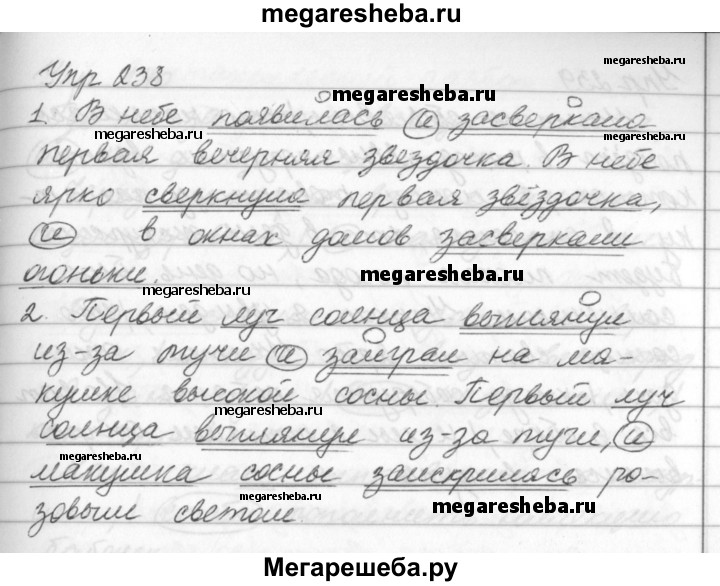 megaresheba.ru
megaresheba.ru
Упр 238
megaresheba.ru
1. В небе появилась и засверкала
megaresheba.ru
первая вечерняя звездочка. В небе
ярко сверкнула первая звёздочка,
и в окнах домов засверкали
огоньки.
megaresheba.ru
megaresheba.ru
2. Первый луч солнца выглянул
из-за тучи и заиграл на ма-
кушке высокой сосны. Первый луч
megaresheba.ru
солнца выглянул из-за тучи, и
megaresheba.ru
макушка сосны заискрилась ро-
megaresheba.ru
megaresheba.ru
зовым светом.
megaresheba.ru
Мегарешеба.ру